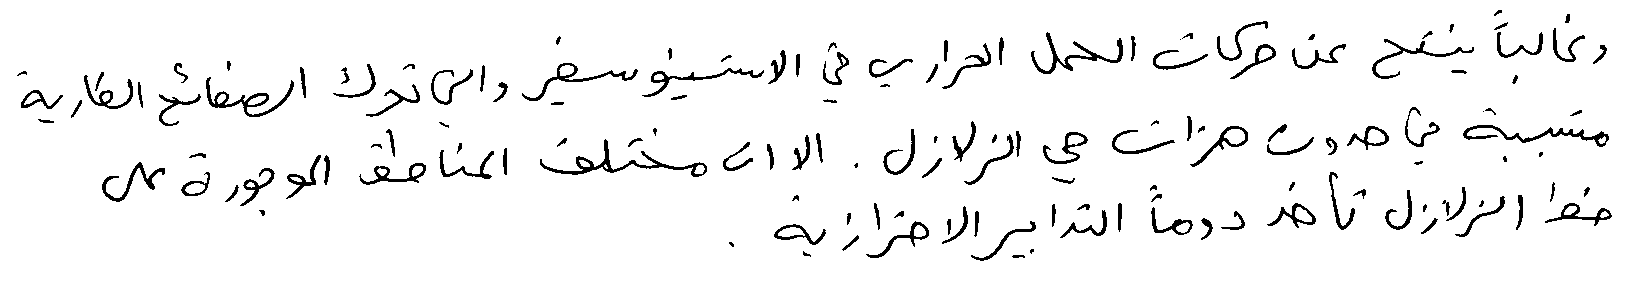 وغالباً ينتج عن حركات الحمل الحراري في الاستينوسفير والتي تحرك الصفائح القارية
متسببة في حدوث هزات هي الزلازل. الا ان مختلف المناطق الموجودة على
خط الزلازل تأخذ دوماً التدابير الاحترازية.